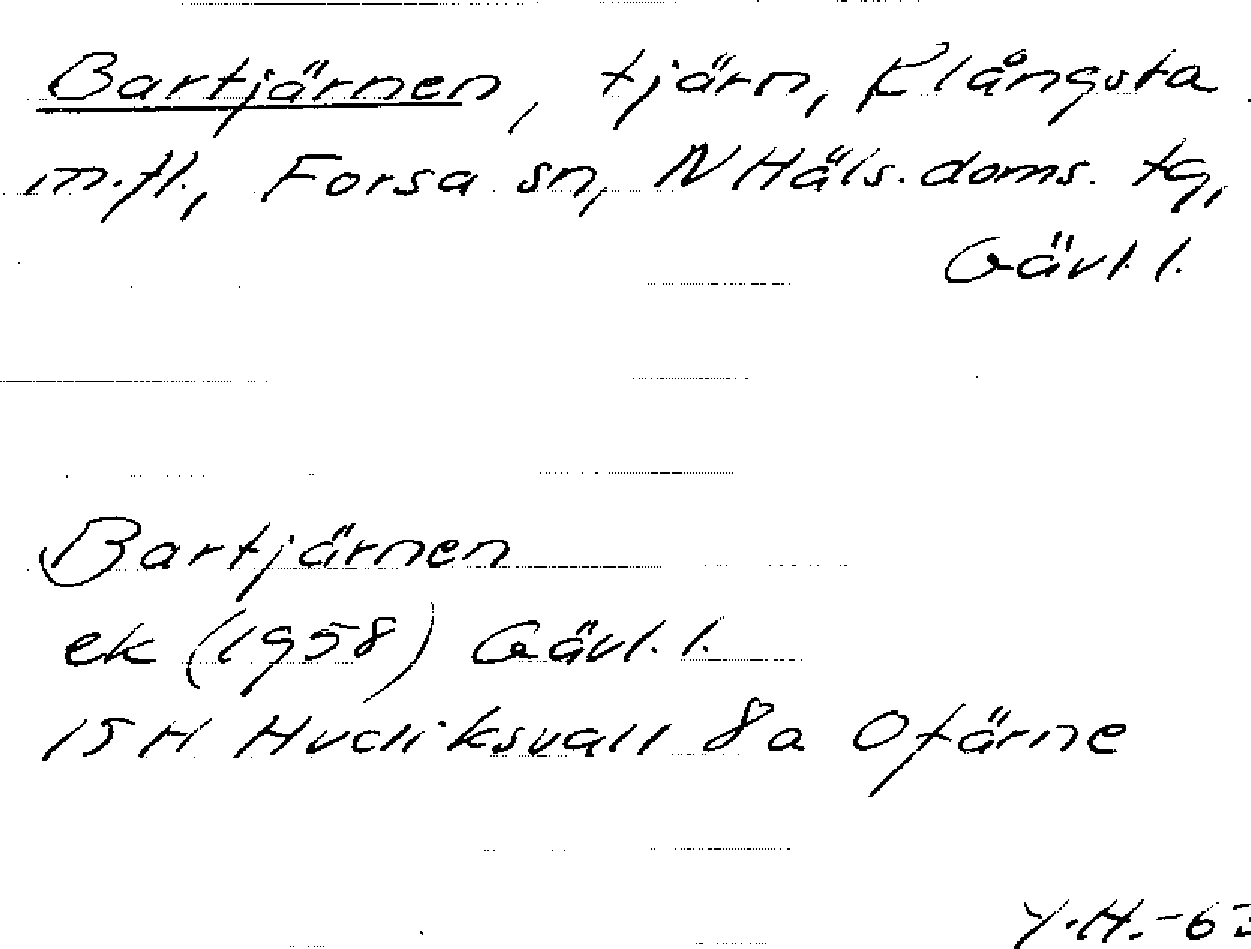 Bartjärnen, tjärn, Klångsta
m.fl., Forsa sn, N Häls. doms. tg,
Gävl. l.
Bartjärnen
ek (1958) Gävl. l.
15H Hudiksvall 8a Ofärne
Y.H.-63